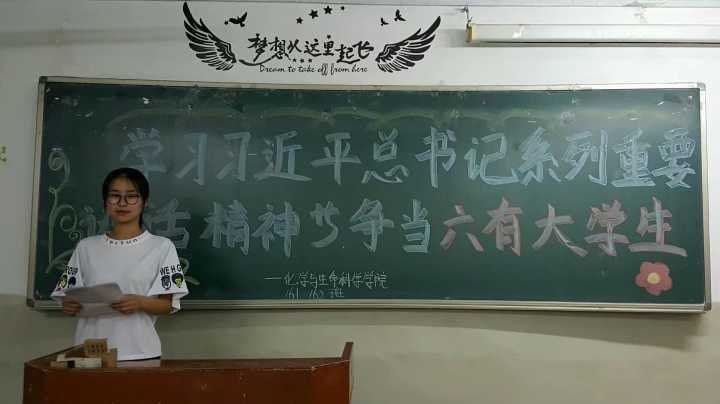 梦想从这里起飞
Dream to take off from here
学习习近平总书记系列重要
话精神 争当六有大学生
—化学与生命科学学院
161 162 班
WE H G